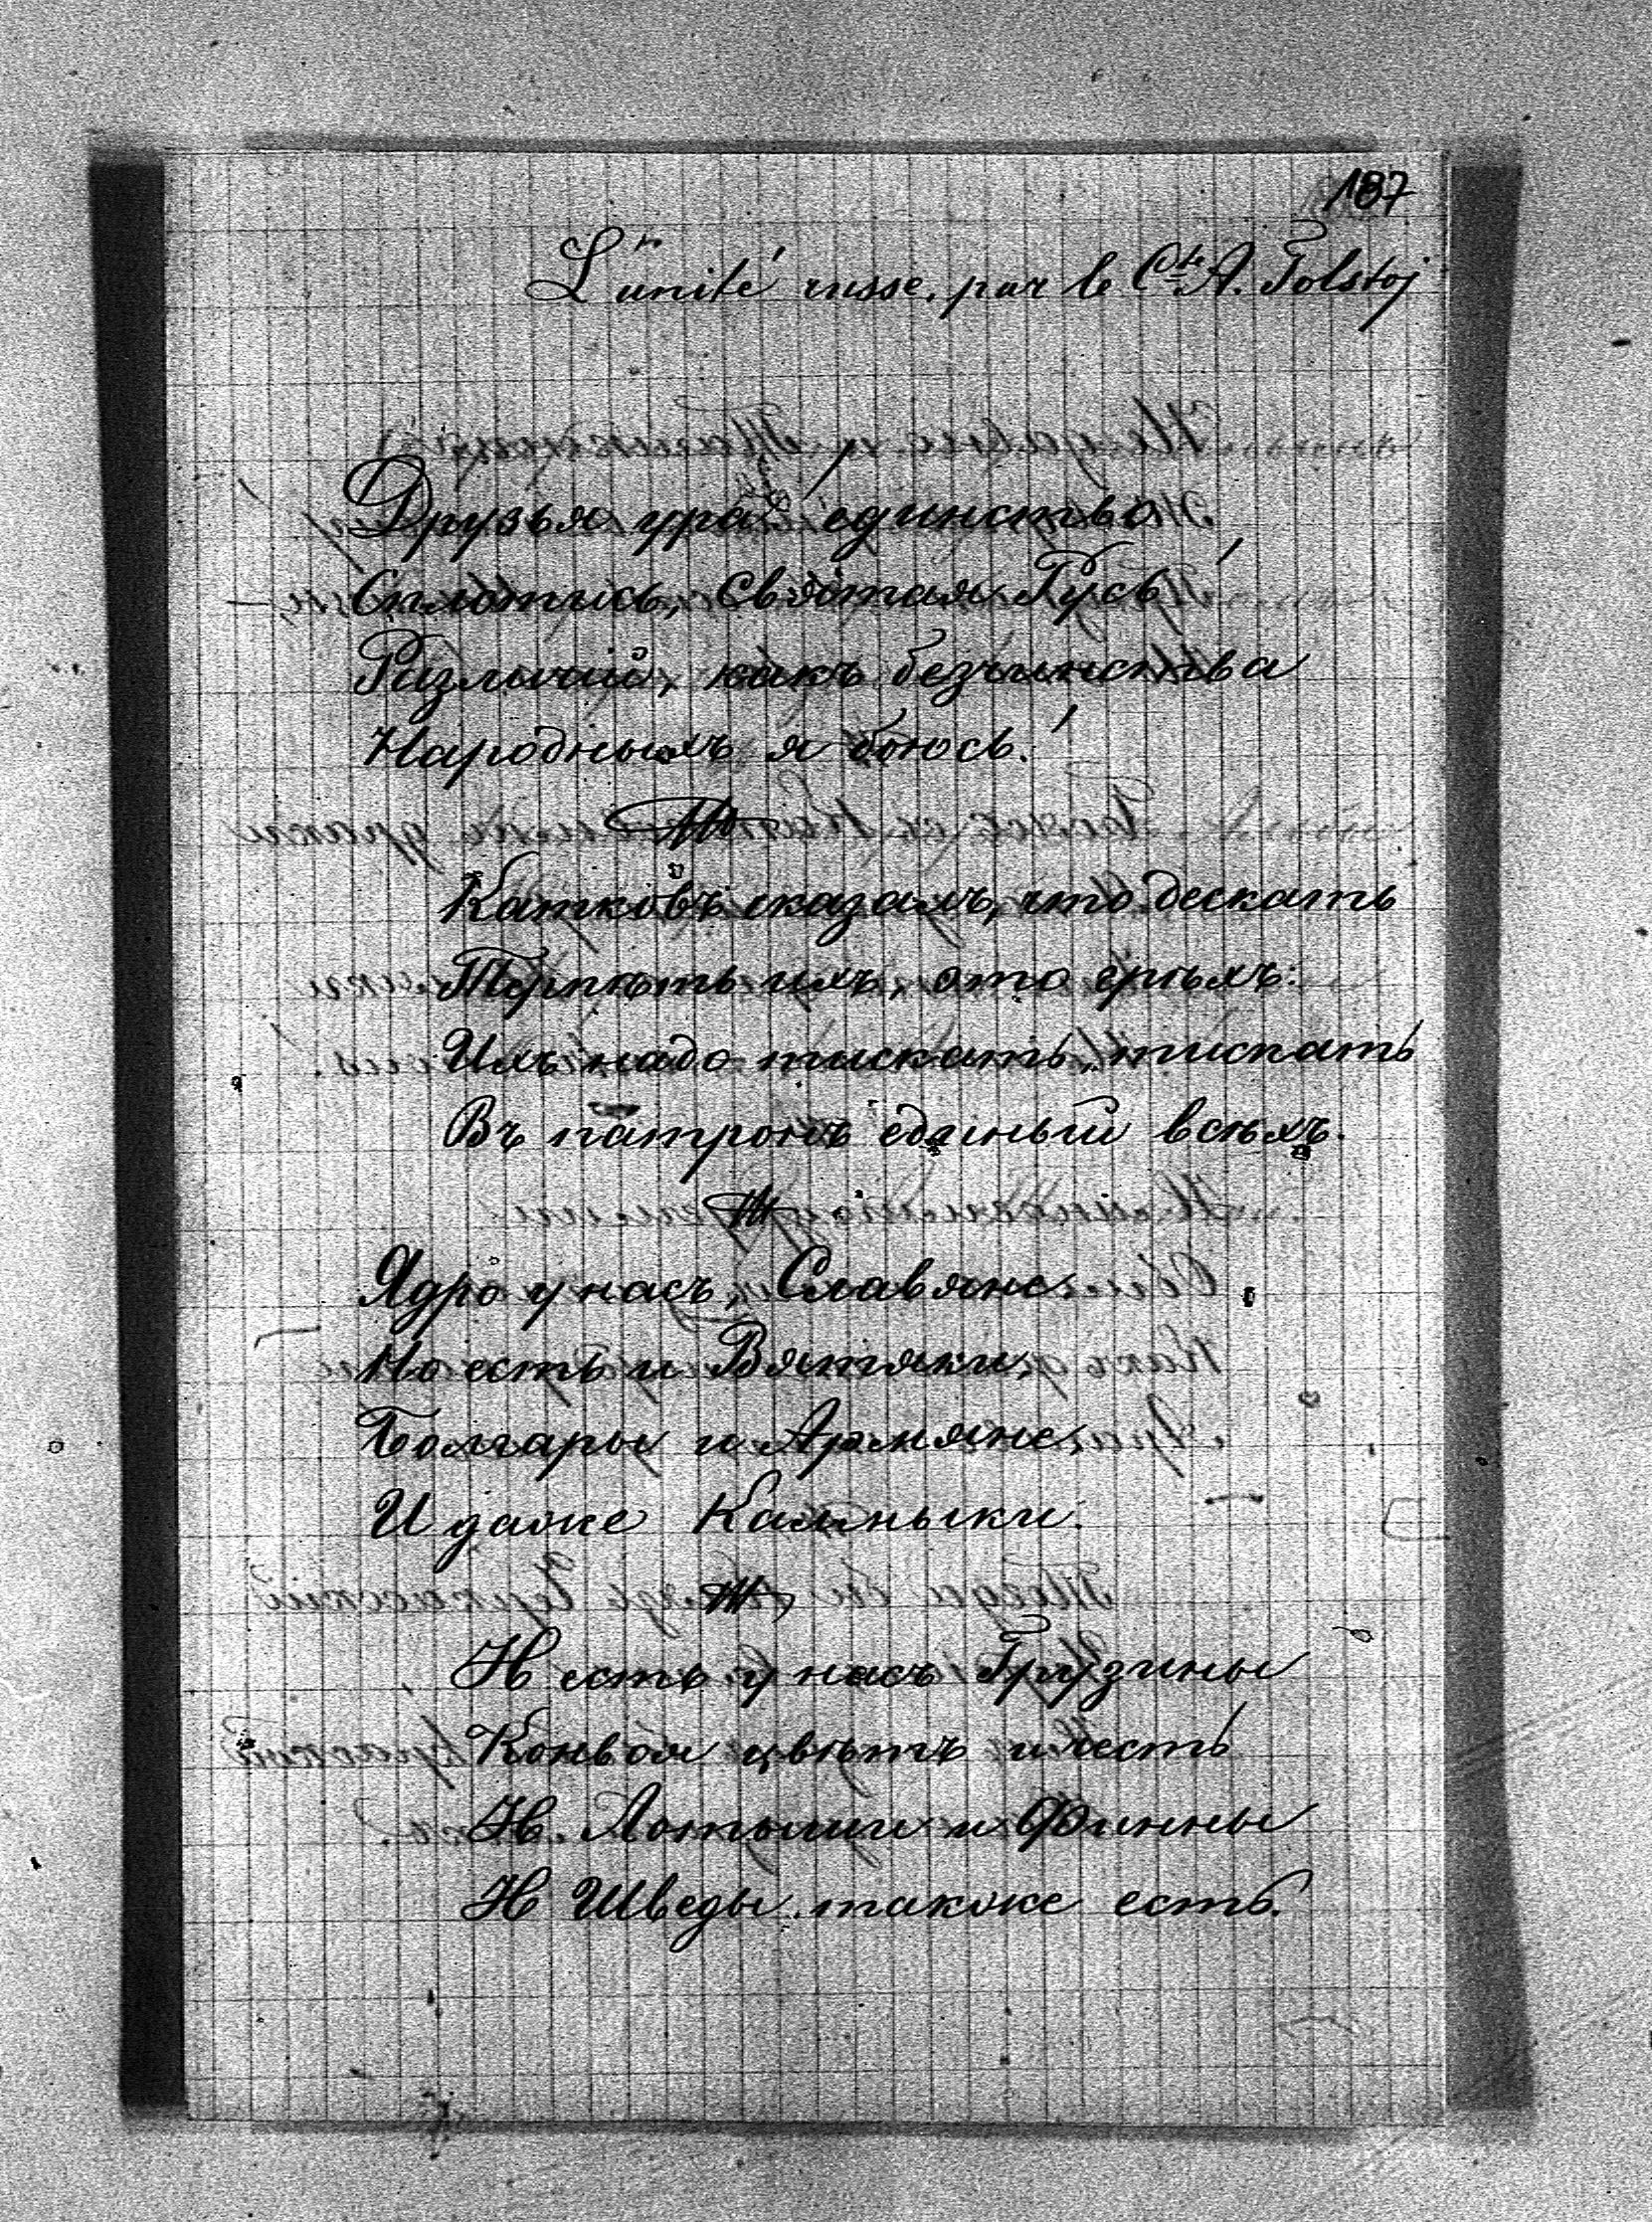 187
L'unité russe, par le Cte A. Tolstoj
Друзья ура единство!
Сплотись, Святая Русь!
Различій, какъ безчинства
Народныхъ я боюсь!
Катковъ сказалъ, что дескать
Терпѣть ихъ, это грѣхъ:
Ихъ надо тискать, тискать
Въ патронъ единый всѣхъ.
Ядро у насъ, Славяне.
Но есть и Вятяки,
Болгары и Армяне,
И даже Калмыки.
И есть у насъ Грузины
Конвоя цвѣтъ и честь
И Латыши и Финны
И Шведы также есть.